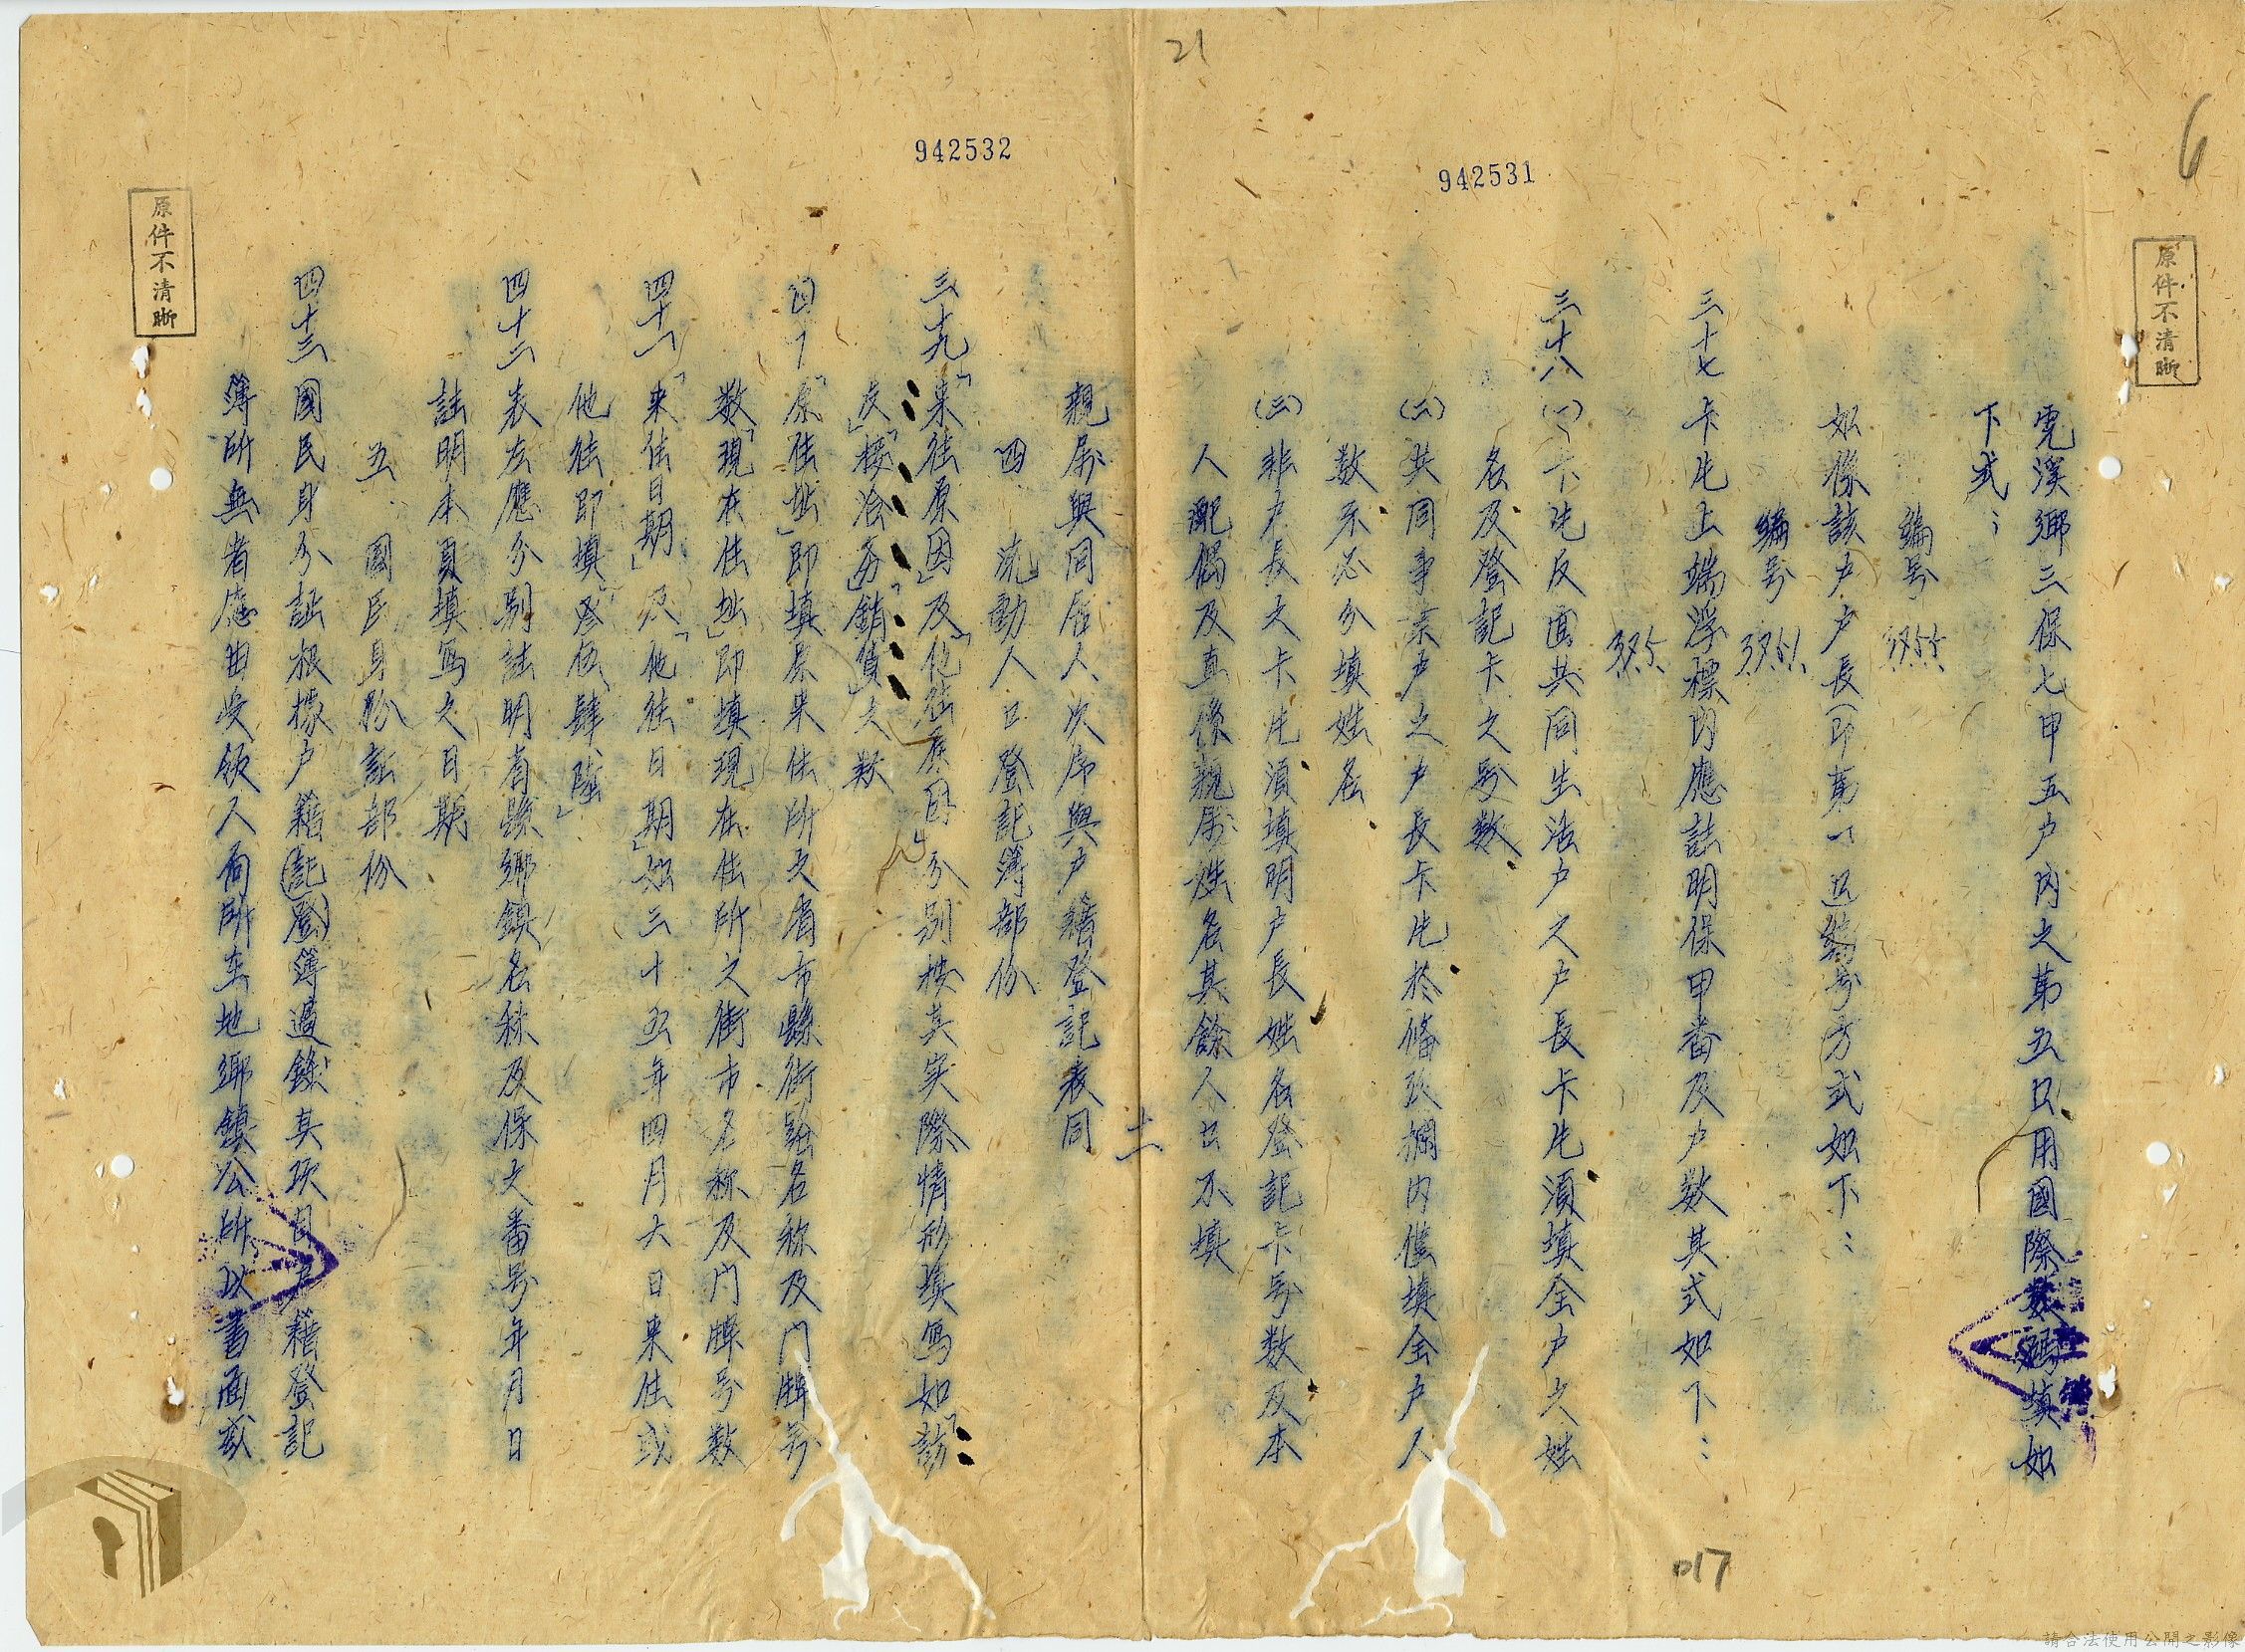 21
6
942531
原件不清晰
霓溪鄉三保七甲五户内之第五口用國際数碼填如
下式：
編号
如係該户户長（即第一口編号方式如下：
編号
三十七 卡片上端浮標内應註明保甲番及户数其式如下：
三十八 (一)卡片反面共同生活户之户長卡片須填全户之姓
名及登記卡之号数
(二)共同事業户之户長卡片於備攷欄内僅填全户人
数不必分填姓名
(三)非户長之卡片須填明户長姓名登記卡号数及本
人配偶及直係親屬姓名其餘人口不填
十一
942532
親屬與同居人次序與户籍登記表同
四 流動人口登記簿部份
三十九「来往原因」及「他往原因」分別按其实際情形填写如「訪
友」「接洽」「銷貨」之類
「原住址」即填原来住所之省市縣街路名称及门牌号
数「現在住址」即填現在住所之街市名称及门牌号数
四十一「来住日期」及「他往日期」如三十五年四月六日来住或
他往即填「叁伍、肆、陸」
四十二 表左應分別註明省縣鄉鎮名称及保之番号年月日
註明本頁填写之日期
五 國民身份証部份
四十三 國民身分証根據户籍(記登)簿過錄其項目户籍登記
簿所無者應由受領人向所在地鄉鎮公所以書面或
原件不清晰
017
請合法使用公開之影像